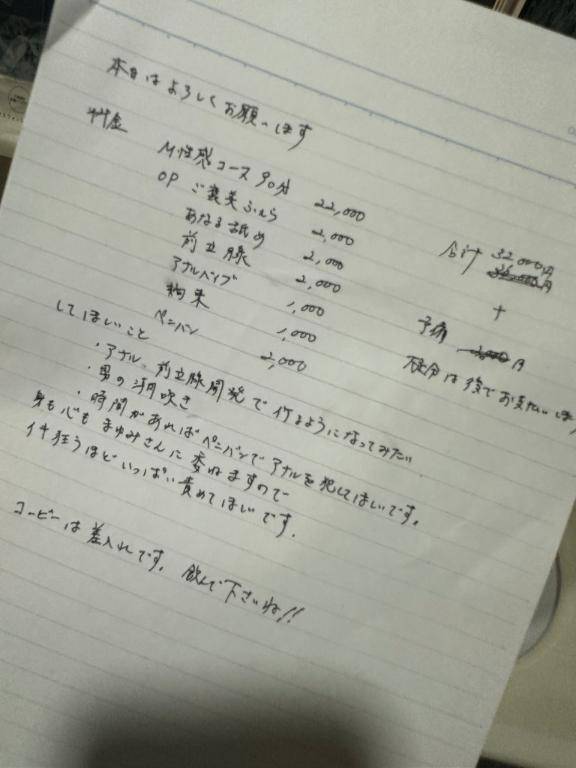 本日はよろしくお願いします
料金
M性感コース90分 22,000
OP ご褒美ふぇら 2,000
あなる舐め 2,000
前立腺 2,000
アナルバイブ 1,000
拘束 1,000
ペニバン 2,000
合計 32,000円
+
円
は後でお支払い
してほしいこと
・アナル、前立腺開発で行けるようになってみたい
・男の潮吹き
・時間があればペニバンでアナルを犯してほしいです。
身も心もまゆみさんに委ねますので
イキ狂うほどいっぱい責めてほしいです。
コーヒーは差入れです。飲んで下さいね!!